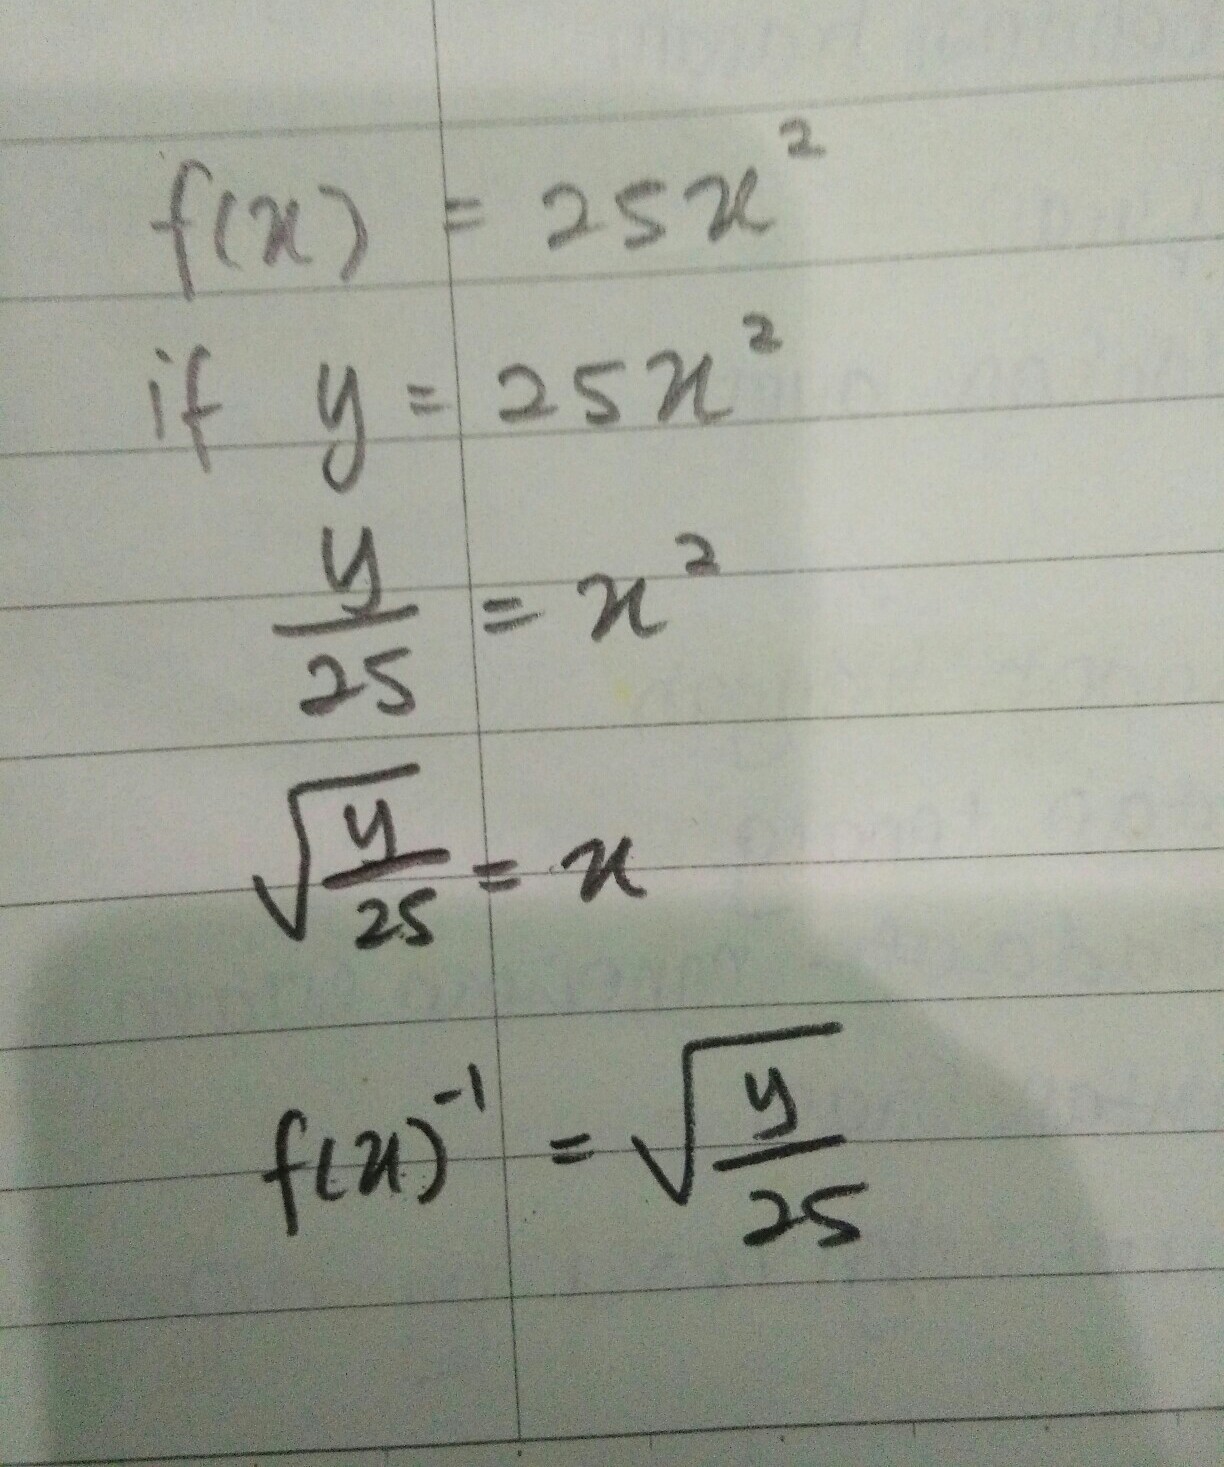 f(x) = 25x²
if y = 25x²
y/25 = x²
√(y/25) = x
f(x)⁻¹ = √(y/25)